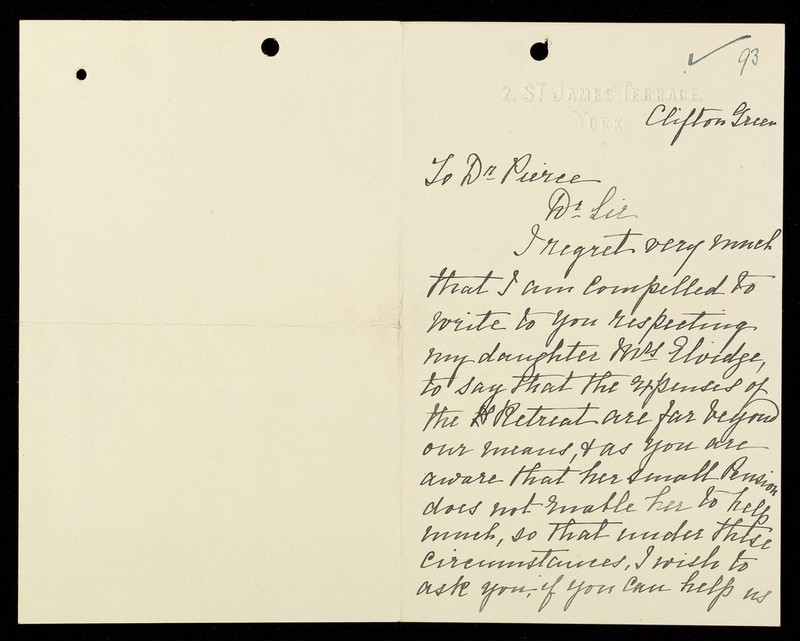 93
2. ST JAMES TERRACE.
YORK.
Clifton Green
To Dr Pierce
Dr Sir
I regret very much
that I am compelled to
write to you respecting
my daughter Mrs Elvidge,
to say that the expenses of
the Retreat are far beyond
our means, & as you are
aware that her small Pension
does not enable her to help
much, so that under these
circumstances, I wish to
ask you, if you can help us